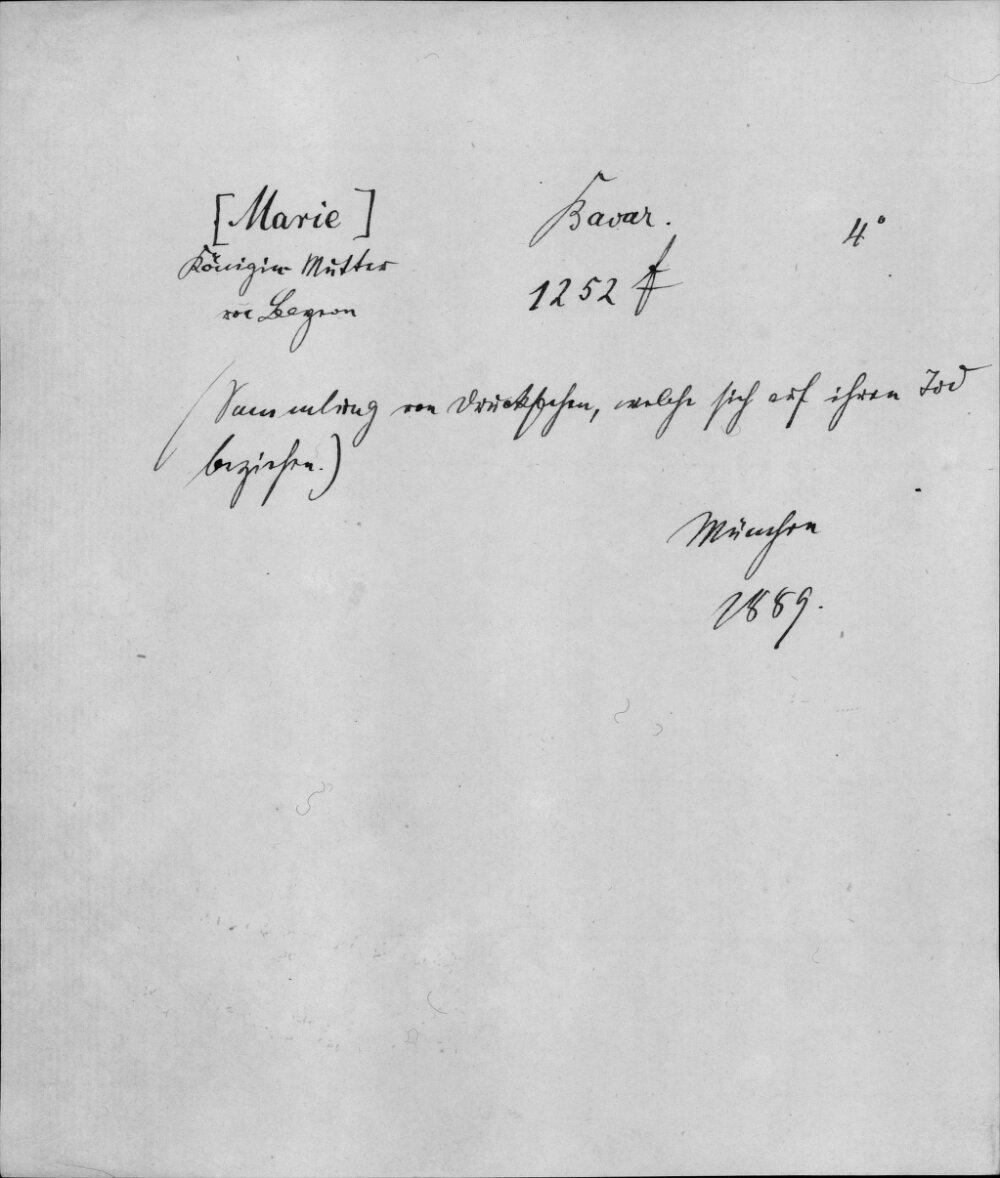 [Marie]
Königin Mutter
von Bayern
Bavar.
1252 f
4°
(Sammlung von Drucksachen, welche sich auf ihren Tod
beziehen.)
München
1889.